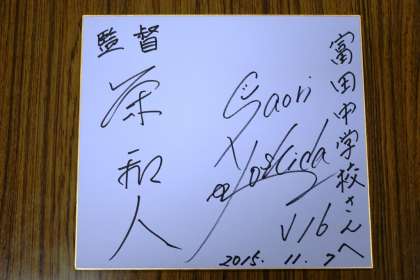 富田中学校さんへ
Saori
Yoshida
V16
2015. 11. 7
監督
栄和人